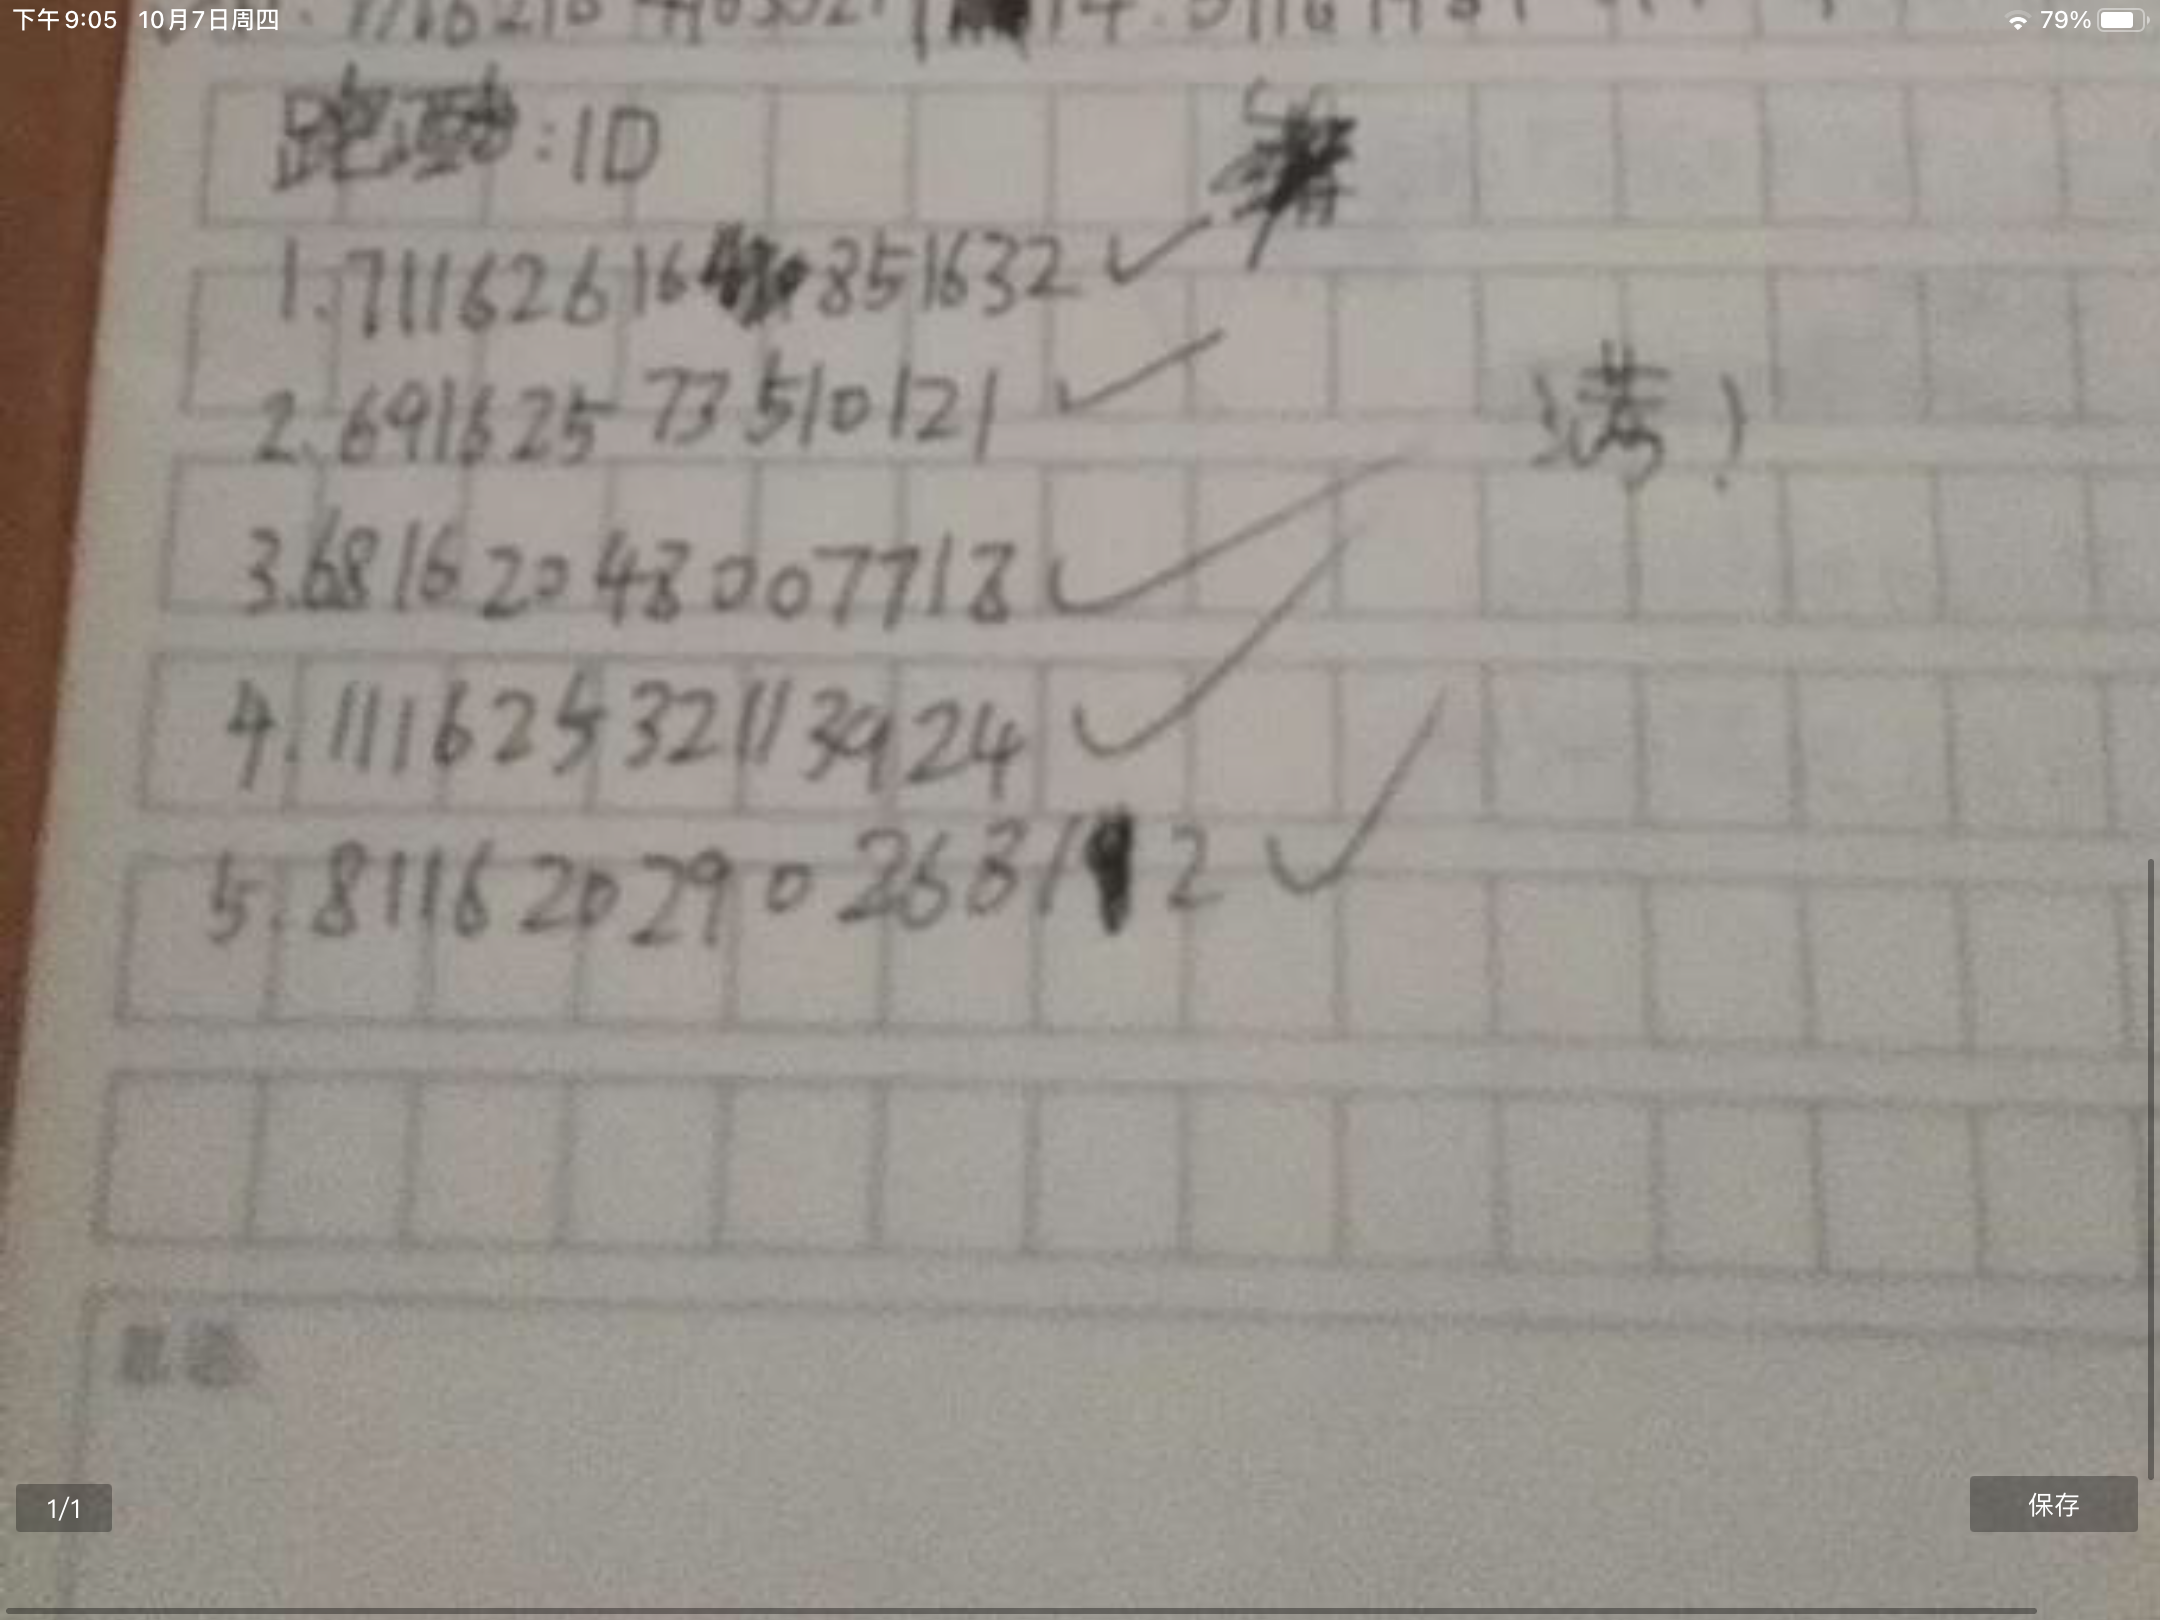 下午9:05 10月7日周四 79%
跑酷:ID
1.711626164 851632
2.69162573510121
3.68162048007718
4.11162532113924
5.8116202902631 2
满!
1/1
保存